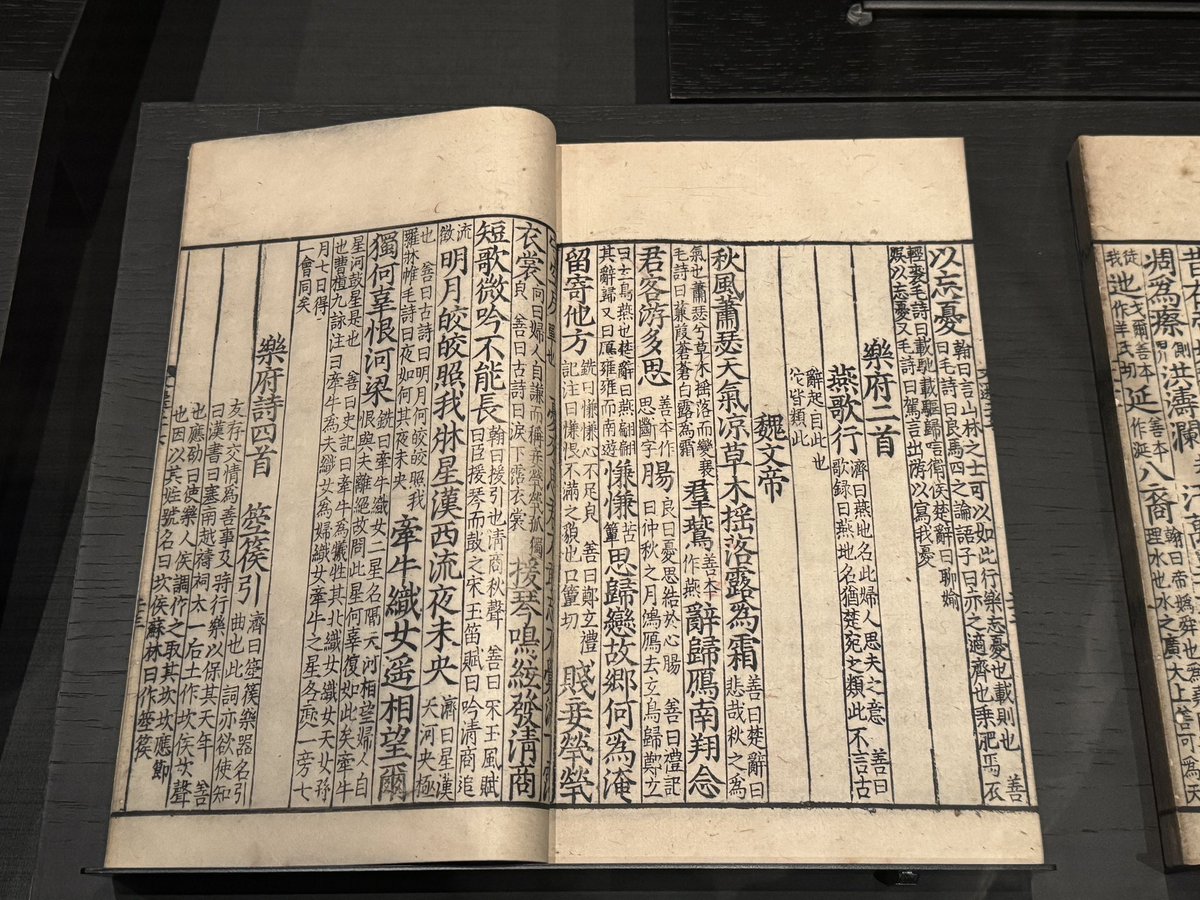 以忘憂翰曰言山林之士可以如此行樂忘憂也載則也 善
曰毛詩曰良馬四之論語子曰亦之適齊也乘肥馬衣
輕裘毛詩曰載馳載驅歸唁衛侯楚辭曰聊婾
娛以忘憂又毛詩曰駕言出游以寫我憂
樂府二首
燕歌行濟曰燕地名此婦人思夫之意 善曰
歌録曰燕地名猶楚宛之類此不言古
辭起自此也
佗皆類此
魏文帝
秋風蕭瑟天氣凉草木摇落露為霜善曰楚辭曰
悲哉秋之為
氣也蕭瑟兮草木摇落而變衰
毛詩曰蒹葭蒼蒼白露為霜羣鷰善本
作燕辭歸鴈南翔念
君客游多思善本作
思斷字腸良曰憂思結於心腸 善曰禮記
曰仲秋之月鴻鴈去玄鳥歸鄭玄
曰玄鳥燕也楚辭曰燕翩翩
其辭歸又曰鴈雍雍而南遊慊慊苦
簟思歸戀故鄉何為淹
留寄他方銑曰慊慊心不足皃 善曰鄭玄禮
記注曰慊恨不滿之貌也口簟切賤妾煢煢
衣裳向曰婦人自謙而稱妾煢煢孤獨
皃 善曰古詩曰淚下霑衣裳援琴鳴絃發清商
短歌微吟不能長翰曰援引也清商秋聲 善曰宋玉風賦
曰臣援琴而鼓之宋玉笛賦曰吟清商追
流
徵明月皎皎照我牀星漢西流夜未央濟曰星漢
天河央極
也 善曰古詩曰明月何皎皎照我
羅牀帷毛詩曰夜如何其夜未央牽牛織女遥相望爾
獨何辜恨河梁銑曰牽牛織女二星名隔天河相望婦人自
恨與夫離絕故問此星何辜復如此矣牽牛
星河鼓星是也 善曰史記曰牽牛為犧牲其北織女織女天女孫
也曹植九詠注曰牽牛為夫織女為婦織女牽牛之星各處一旁七
月七日得
一會同矣
樂府詩四首 箜篌引濟曰箜篌樂器名引
曲也此詞亦欲使知
友存交情為善事及將行樂以保其天年 善
曰漢書曰塞南越禱祠太一后土作坎侯坎聲
也應劭曰使樂人侯調作之取其坎坎應節
也因以其姓號名曰坎侯蘇林曰作箜篌